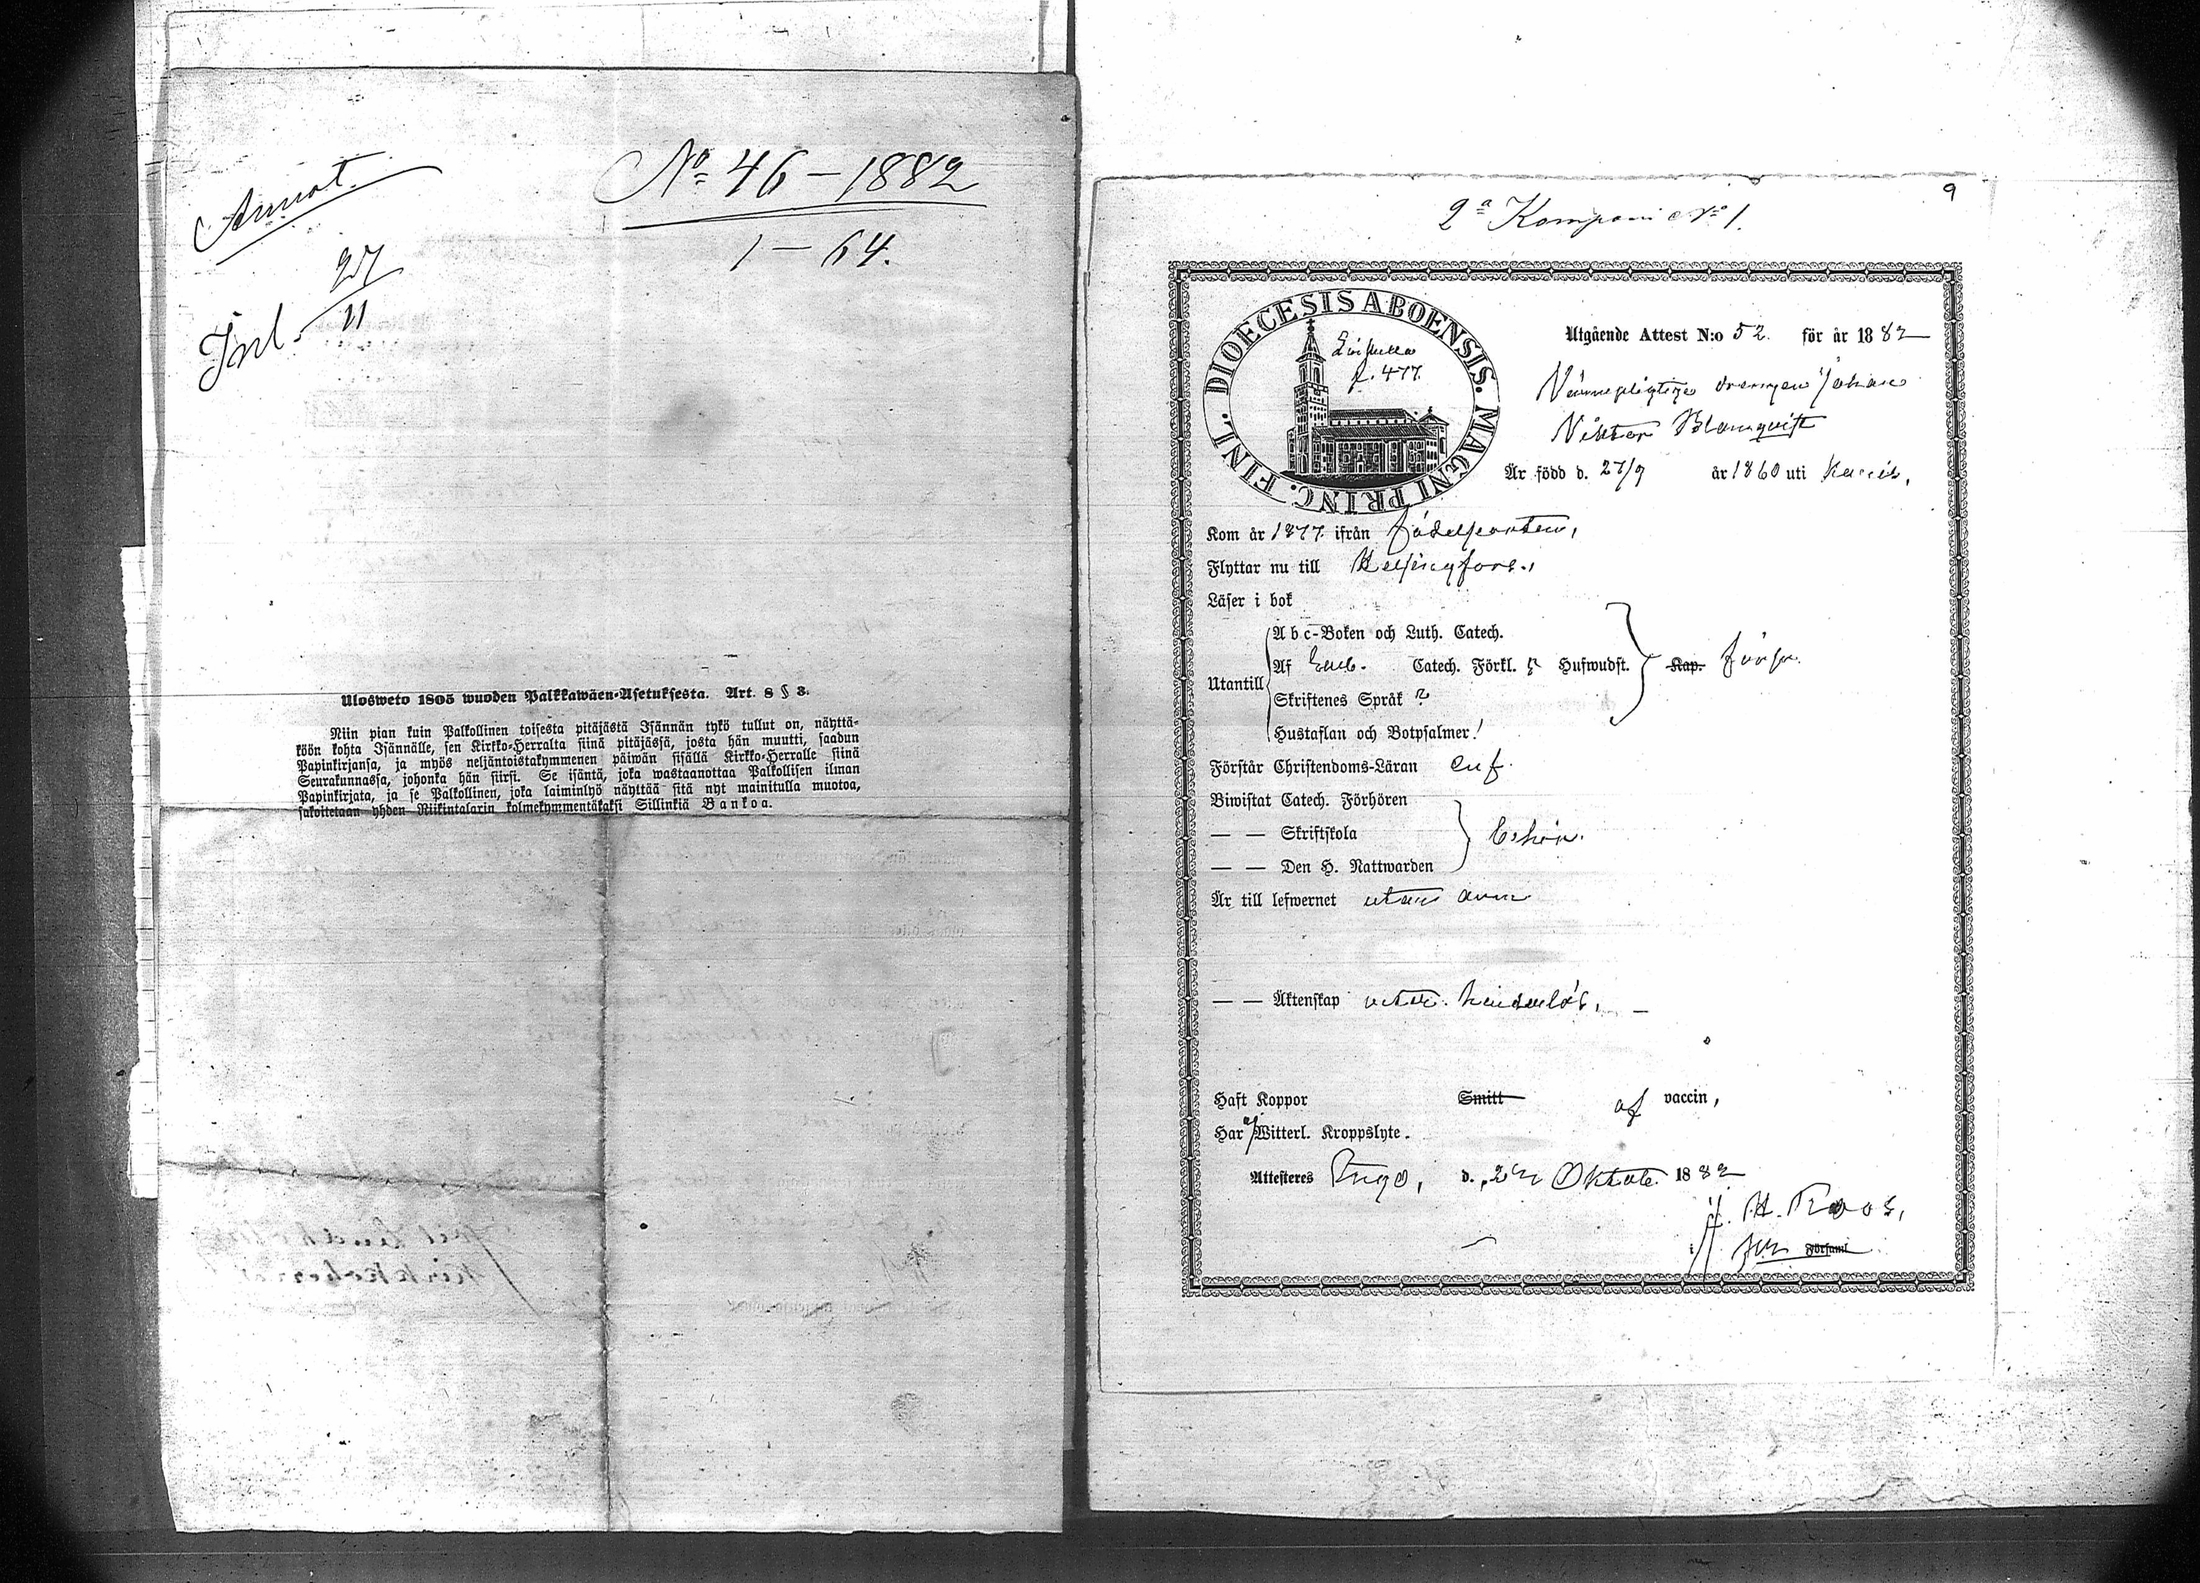 Annot.
Inl. 27/11
No 46 – 1882
1 – 64.
Ulosweto 1805 wuoden Palkkawäen-Asetuksesta. Art. 8 § 3.
Niin pian kuin Palkollinen toisesta pitäjästä Isännän tykö tullut on, näyttä-
köön kohta Isännälle, sen Kirkko-Herralta siinä pitäjässä, josta hän muutti, saadun
Papinkirjansa, ja myös neljäntoistakymmenen päiwän sisällä Kirkko-Herralle siinä
Seurakunnassa, johonka hän siirsi. Se isäntä, joka wastaanottaa Palkollisen ilman
Papinkirjata, ja se Palkollinen, joka laiminlyö näyttää sitä nyt mainitulla muotoa,
sakoitetaan yhden Riikintalarin kolmekymmentäkaksi Sillinkiä Bankoa.
9
2a Kompani No 1.
DIOECESIS ABOENSIS. MAGNI PRINC. FINL.
p. 477.
Utgående Attest N:o 52. för år 1882
Värnepligtige drengen Johan
Viktor Blomqvist
Är född d. 27/9 år 1860 uti Karis,
Kom år 1877 ifrån födelseorten,
Flyttar nu till Helsingfors.
Läser i bok
Abc-Boken och Luth. Catech.
Af Catech. Förkl. Hufwudst. Kap. försv.
Utantill
Skriftenes Språk ?
Hustaflan och Botpsalmer!
Förstår Christendoms-Läran
Biwistat Catech. Förhören
— — Skriftskola
— — Den H. Nattwarden
Är till lefwernet utan anm
— — Äktenskap hinderlös,
Haft Koppor Smitt af vaccin,
Har ej Witterl. Kroppslyte.
Attesteres Ingo, d. Oktob. 1882
H. Roos,
Församl